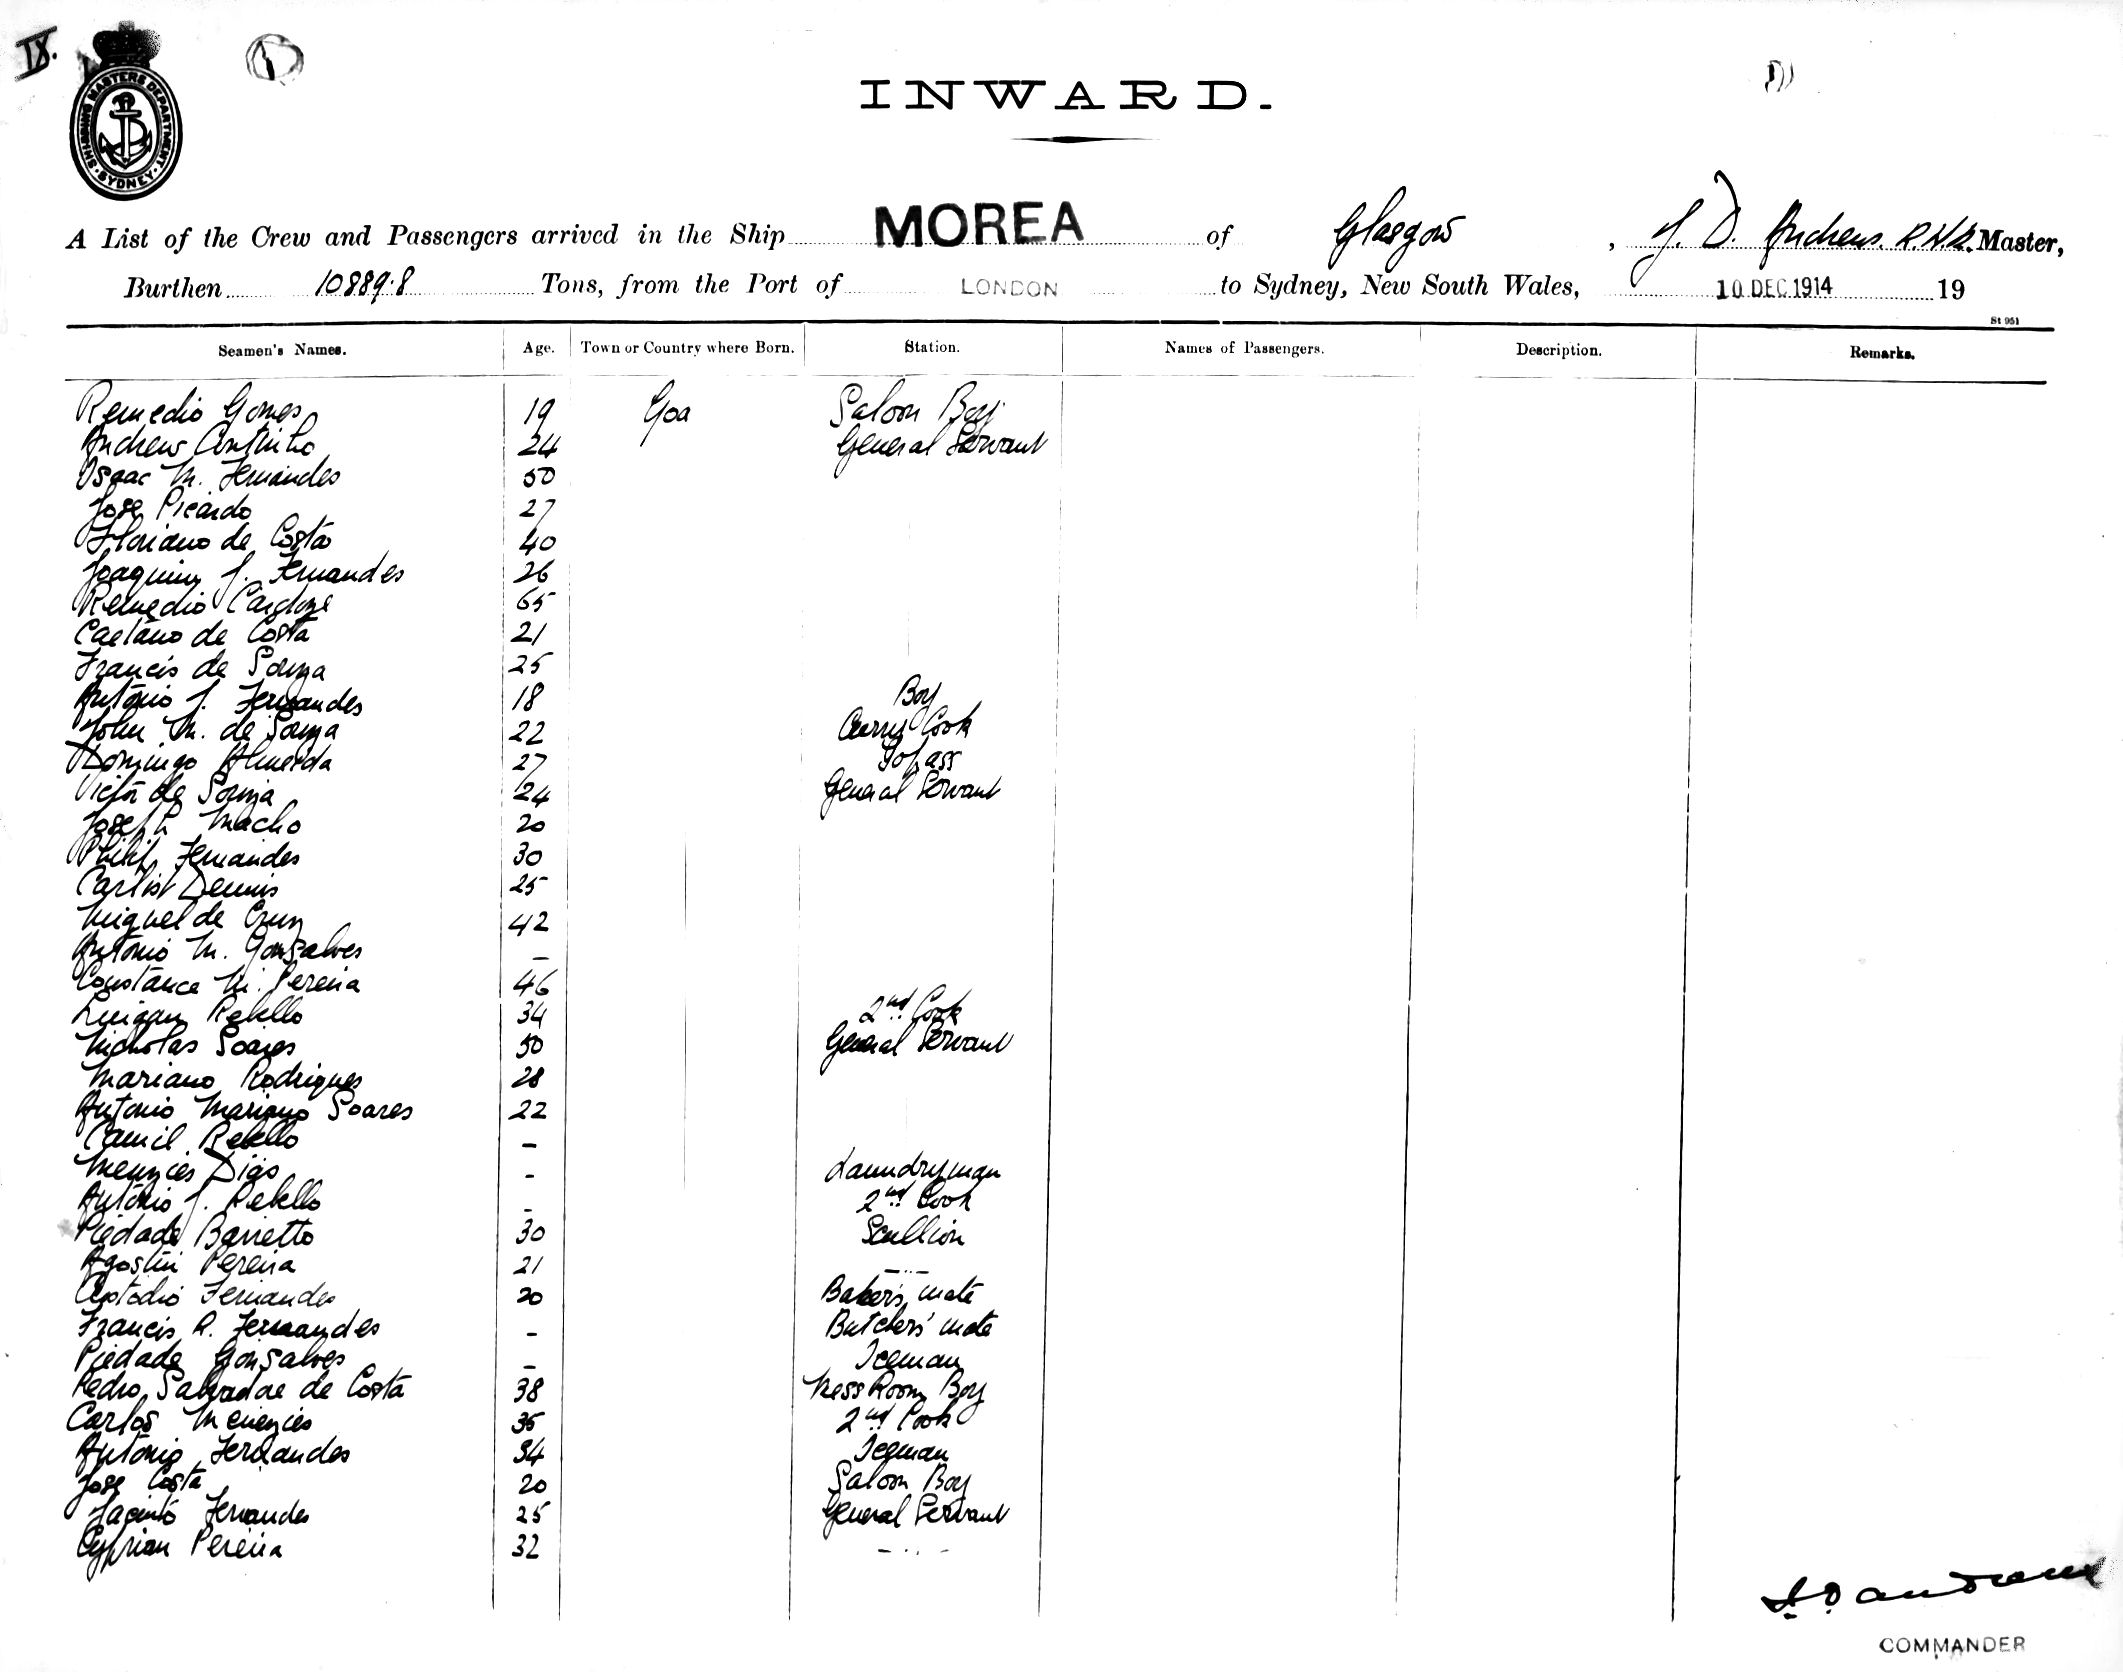 IX.
SHIPPING MASTERS DEPARTMENT
SYDNEY
INWARD.
A List of the Crew and Passengers arrived in the Ship MOREA of Glasgow, J. D. Andrews. R.N.R. Master,
Burthen 10889.8 Tons, from the Port of LONDON to Sydney, New South Wales, 10 DEC 1914 19
St 951
Seamen's Names. Age. Town or Country where Born. Station. Names of Passengers. Description. Remarks.
Remedio Gomes 19 Goa Saloon Boy
Andrew Continho 24 General Servant
Isaac M. Fernandes 50
Jose Picardo 27
Floriano de Costa 40
Joaquim J. Fernandes 26
Remedio Cardoze 65
Caetano de Costa 21
Francis de Souza 25
Antonio J. Fernandes 18 Boy
John M. de Souza 22 Curry Cook
Domingo Almeida 27 Topass
Victor de Souza 24 General Servant
Joseph Macho 20
Philip Fernandes 30
Carlist Dennis 25
Miguel de Cruz 42
Antonio M. Gonsalves –
Constance M. Pereira 46
Rebello 34 2nd Cook
Nicholas Soares 50 General Servant
Mariano Rodrigues 28
Antonio Mariano Soares 22
Camil Rebello –
Menzies Dias - Laundryman
Antonio J. Rebello - 2nd Cook
Piedade Barretto 30 Scullion
Agostin Pereira 21 -..-
Custodio Fernandes 20 Baker's mate
Francis R. Fernandes - Butchers' mate
Piedade Gonsalves – Iceman
Pedro Salvadae de Costa 38 Mess Room Boy
Carlos Menezies 35 2nd Cook
Antonio Fernandes 34 Iceman
Jose Costa 20 Saloon Boy
Jacinto Fernandes 25 General Servant
Cyprian Pereira 32 -..-
J. D. Andrews
COMMANDER